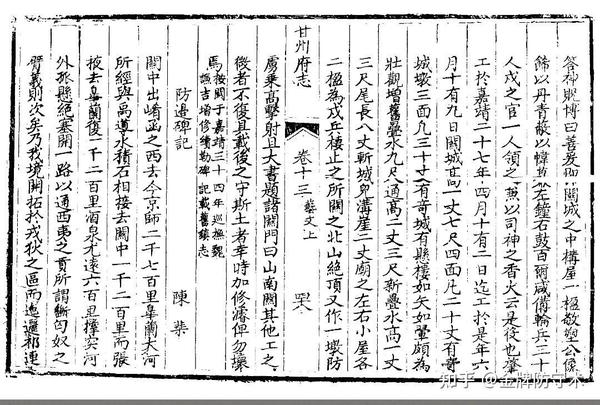 答神貺博曰善爰卽關城之中構屋一楹敬塑公像
飾以丹青敝以幃 左鐘石鼓百爾咸備輪兵三十
人戍之官一人領之兼以司神之香火云是役也肇
工於嘉靖二十七年四月十有二日迄工於是年六
月十有九日關城高一丈七尺四面凡二十丈有奇
城壕三面凡三十丈有奇城有懸樓如矢如翬頗為
壯觀增舊疊水九尺通高二丈三尺新疊水高一丈
三尺尾長八丈斬城東溝崖二丈廟之左右小屋各
二楹為戍兵棲止之所關之北山絕頂又作一墩防
甘州府志 卷十三 藝文上
虜乘高擊射且大書題諸關門曰山南關其他工之
微者不復具載後之守斯土者幸時加修濬俾勿壞
馬按關于嘉靖三十四年巡撫魏
謙吉增修續勒碑記載舊鎮志
防邊碑記 陳棐
關中出崤函之西去今京師二千七百里臯蘭大河
所經與禹導水積石相接去關中一千二百里而張
掖去臯蘭復一千二百里酒泉尤遠六百里擇突河
外孤縣絕塞開一路以通西夷之貢所謂斷匈奴之
臂義則次矣乃我境開拓於戎狄之區而逸邐祁連
知乎 @金牌防守术